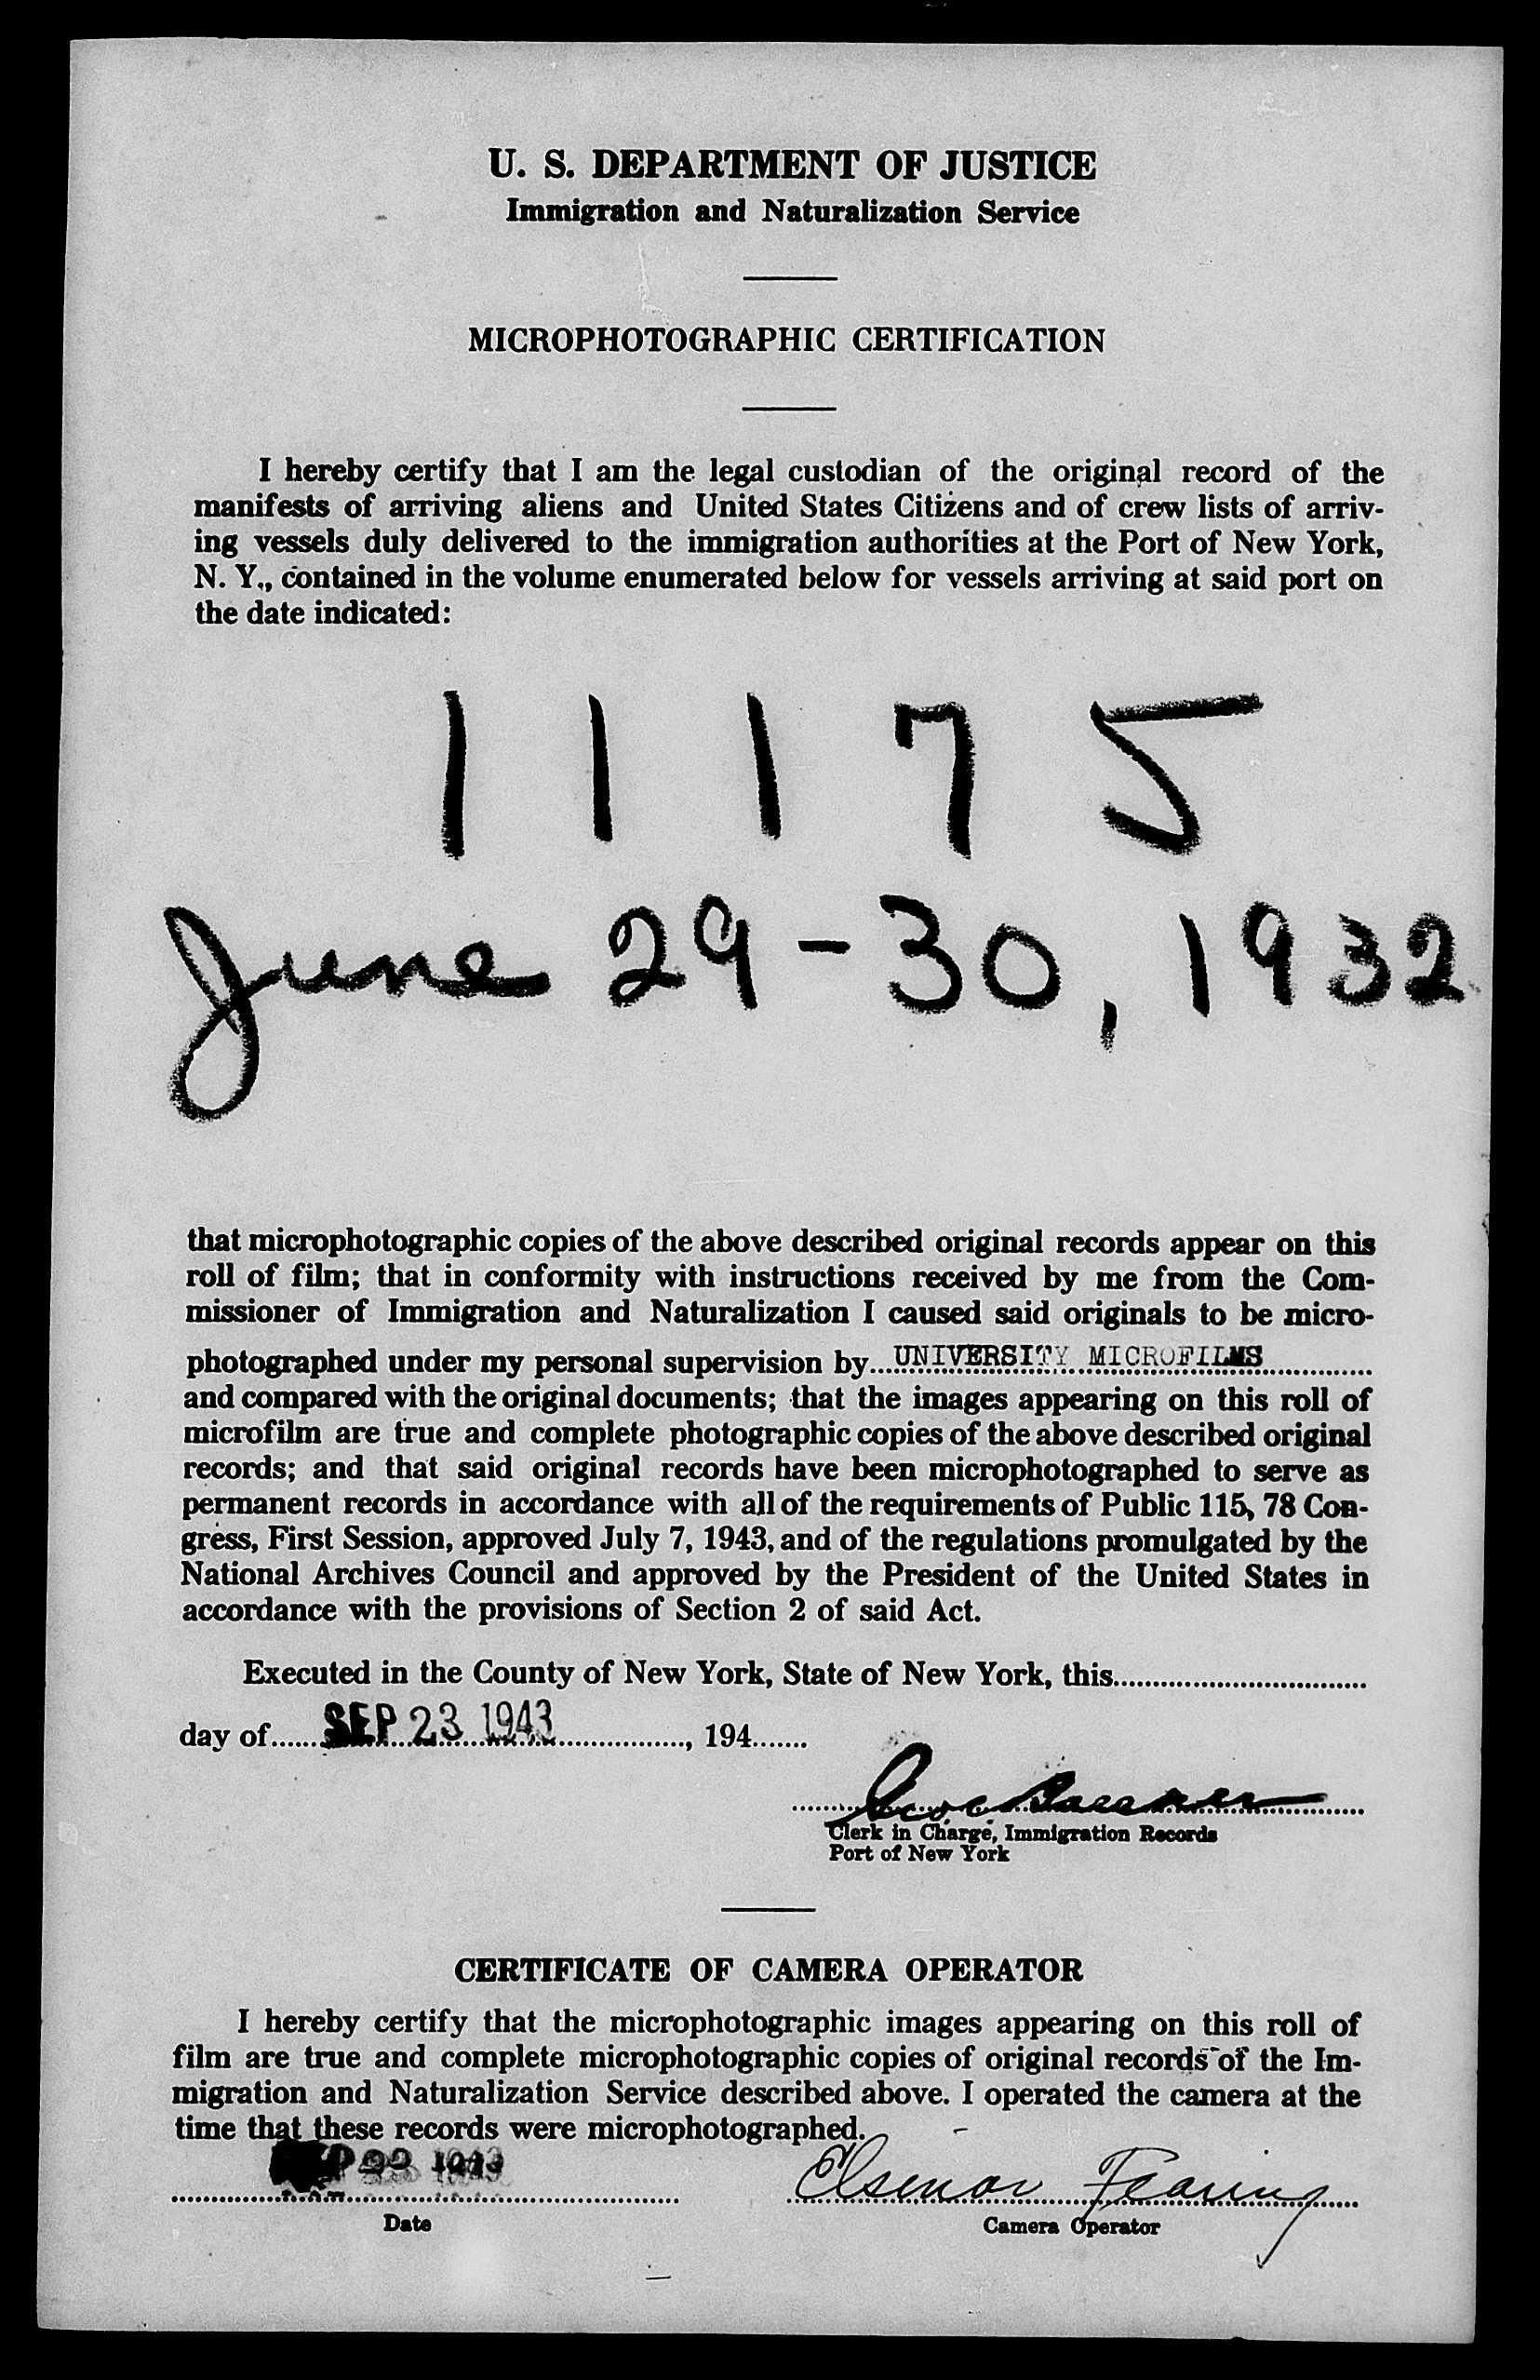 U. S. DEPARTMENT OF JUSTICE
Immigration and Naturalization Service
MICROPHOTOGRAPHIC CERTIFICATION
I hereby certify that I am the legal custodian of the original record of the
manifests of arriving aliens and United States Citizens and of crew lists of arriv-
ing vessels duly delivered to the immigration authorities at the Port of New York,
N. Y., contained in the volume enumerated below for vessels arriving at said port on
the date indicated:
11175
June 29-30, 1932
that microphotographic copies of the above described original records appear on this
roll of film; that in conformity with instructions received by me from the Com-
missioner of Immigration and Naturalization I caused said originals to be micro-
photographed under my personal supervision by UNIVERSITY MICROFILMS
and compared with the original documents; that the images appearing on this roll of
microfilm are true and complete photographic copies of the above described original
records; and that said original records have been microphotographed to serve as
permanent records in accordance with all of the requirements of Public 115, 78 Con-
gress, First Session, approved July 7, 1943, and of the regulations promulgated by the
National Archives Council and approved by the President of the United States in
accordance with the provisions of Section 2 of said Act.
Executed in the County of New York, State of New York, this
day of SEP 23 1943, 194
Clerk in Charge, Immigration Records
Port of New York
CERTIFICATE OF CAMERA OPERATOR
I hereby certify that the microphotographic images appearing on this roll of
film are true and complete microphotographic copies of original records of the Im-
migration and Naturalization Service described above. I operated the camera at the
time that these records were microphotographed.
1943
Date
Camera Operator